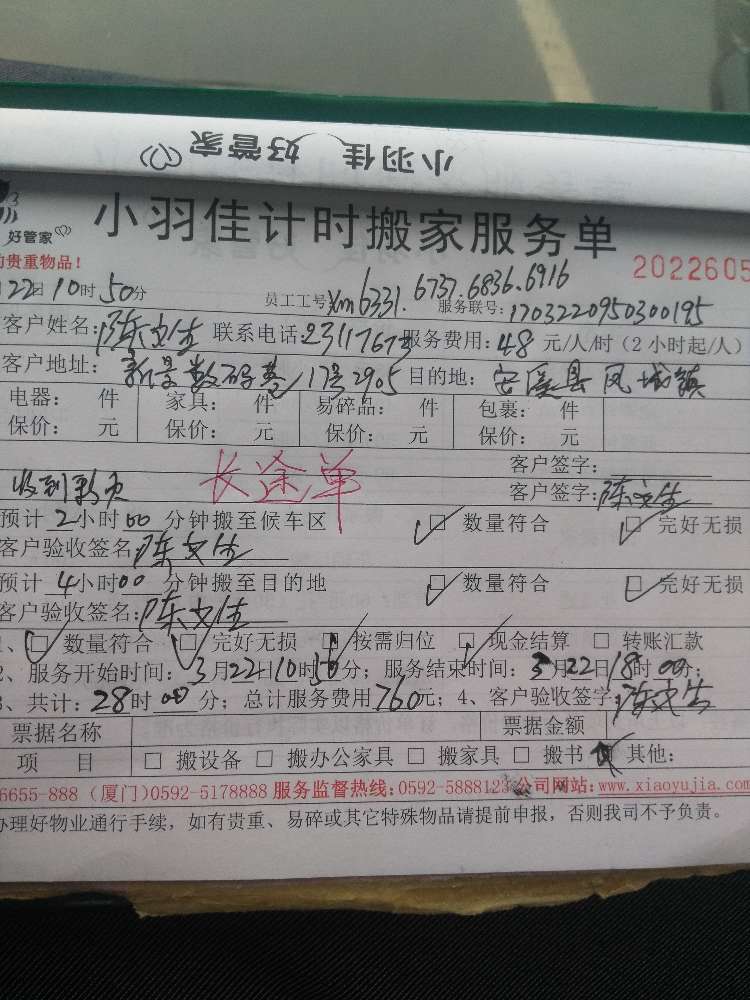 小羽佳 好管家
好管家
小羽佳计时搬家服务单
的贵重物品!
2022605
22日10时50分 员工工号:Xm6331.6737.6836.6916
服务联号:1703220950300195
客户姓名: 联系电话:23117673 服务费用:48元/人/时(2小时起/人)
客户地址:新景数码港17号2905 目的地:安溪县凤城镇
电器: 件 家具: 件 易碎品: 件 包裹: 件
保价: 元 保价: 元 保价: 元 保价: 元
长途单 客户签字:
收到 客户签字:
预计2小时00分钟搬至候车区 □数量符合 □完好无损
客户验收签名:
预计4小时00分钟搬至目的地 □数量符合 □完好无损
客户验收签名:
1、□数量符合 □完好无损 □按需归位 □现金结算 □转账汇款
2、服务开始时间:3月22日10时50分;服务结束时间:3月22日18时00分;
3、共计:28时00分;总计服务费用760元;4、客户验收签字:
票据名称 票据金额
项 目 □搬设备 □搬办公家具 □搬家具 □搬书 □其他:
6655-888 (厦门)0592-5178888 服务监督热线:0592-5888123 公司网站:www.xiaoyujia.com
办理好物业通行手续,如有贵重、易碎或其它特殊物品请提前申报,否则我司不予负责。